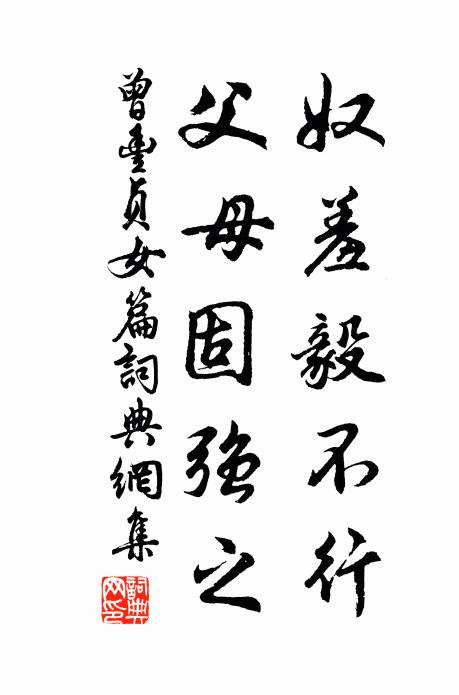 奴羞毅不行
父母固強之
曾豐貞女篇詞典網集
詞典網印